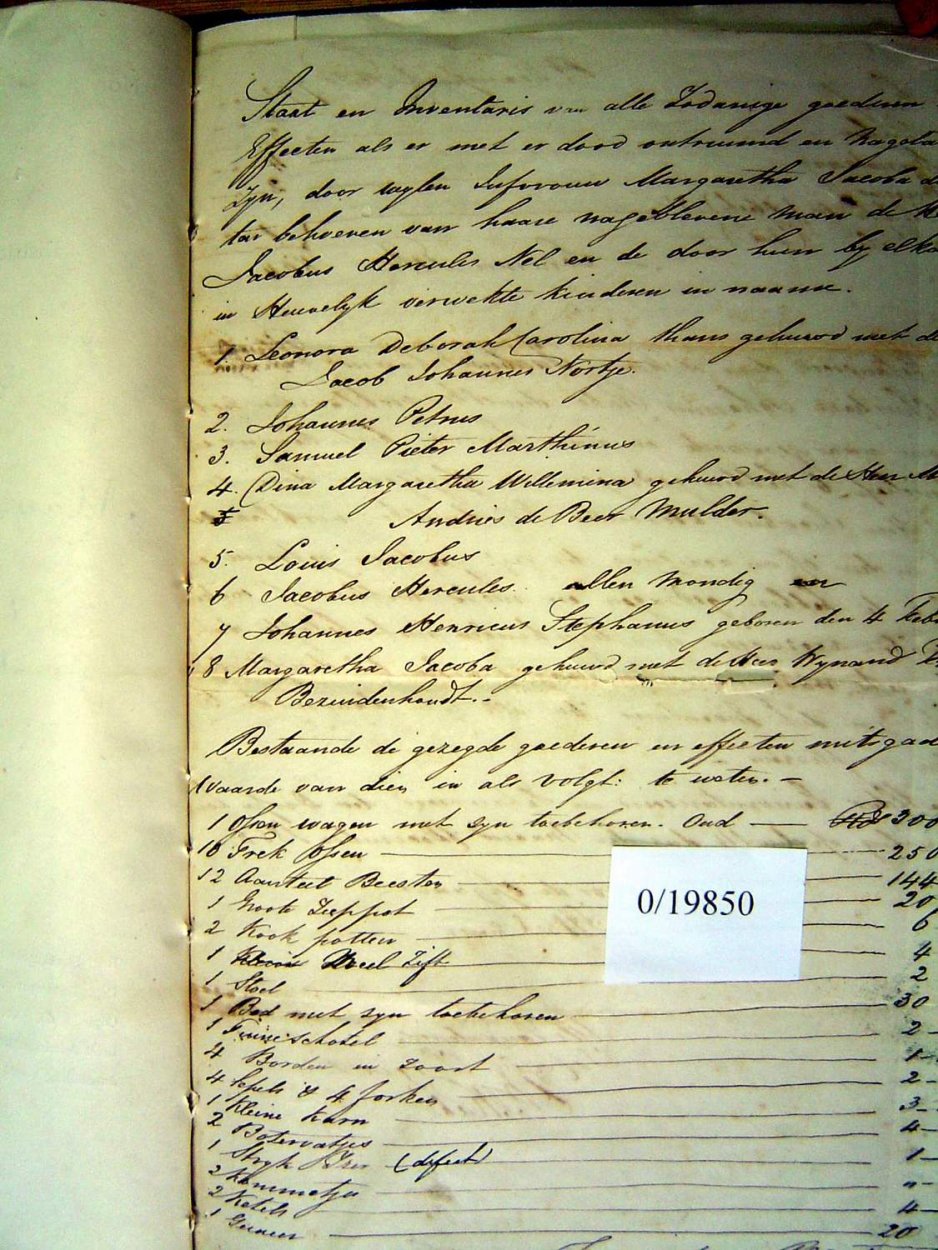 Staat en Inventaris van alle Zodanige goederen
Effecten als er met er dood ontruimd en nagela
Zyn, door wylen Juforouw Margaretha Jacoba d
ten behoeven van haare nageblevene man de H
Jacobus Hercules Nel en de door hun by elka
in Heuwelyk verwekte kinderen in naame.
1. Leonora Deborah Carolina thans gehuwd met de
Jacob Johannes Nortje.
2. Johannes Petrus
3. Samuel Pieter Marthinus
4. Dina Margaretha Willemina gehuwd met de Heer M
5 Andries de Beer Mulder.
5. Louis Jacobus
6 Jacobus Hercules. allen mondig en
7 Johannes Henricus Stephanus geboren den 4 Feb
8 Margaretha Jacoba gehuwd met de Heer Wynand
Bezuidenhoudt.-
Bestaande de gezegde goederen en effecten mitsgad
waarde van dien in als volgt: te weten. -
1 Ossen wagen met zyn toebehoren. Oud — 300
10 Trek Ossen — 250
12 Aanteel Beesten — 144
1 Groote Zeeppot — 20
2 Kook potten — 6
1 Meel Zift — 4
1 Stoel — 2
1 Bed met zyn toebehoren — 30
1 schotel — 2-
4 Borden in zoort — 1-
4 Lepels & 4 forken — 2-
1 Kleine Karn — 3-
2 Botervatjes — 4-
1 Stryk Yzer (defect) — 1-
2 Kommetjes —
2 Ketels — 4-
1 Geweer — 20
0/19850